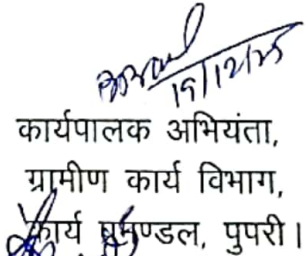 19/12/25
कार्यपालक अभियंता,
ग्रामीण कार्य विभाग,
कार्य प्रमण्डल, पुपरी।